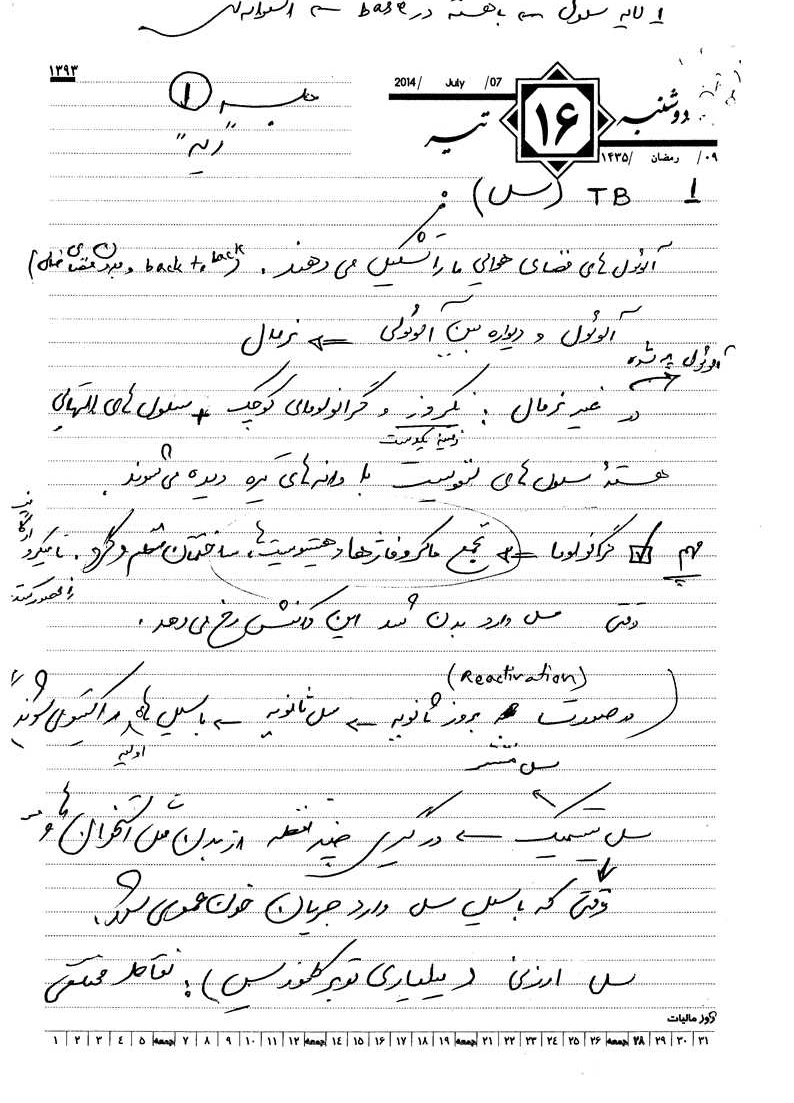 ۱ لایه سلول ← با هسته در base ← استوانه‌ای
۱۳۹۳
2014/ July /07
دوشنبه ۱۶ تیر
۱۴۳۵/ رمضان /۰۹
جلسه ۱
"ریه"
1 TB (سل) :
آلوئول های فضای هوایی ما را تشکیل می دهند. (back to back و بدون فضای
آلوئول و دیواره بین آلوئولی ⇐ نرمال
آلوئول پر شده
در غیر نرمال : نکروز و گرانولومای کوچک + سلول های التهابی
زمینه یکدست
هستهٔ سلول های لنفوسیت با دانه‌های تیره دیده می شوند.
مهم گرانولوما ⇐ تجمع ماکروفاژها و هیستیوسیت ها، ساختمان منظم و گرد. تا میکرو
را محصور کند
وقتی سل وارد بدن شد این واکنش رخ می دهد.
(Reactivation)
در صورت بروز ثانویه ← سل ثانویه ← باسیل های اولیه راکتیو می شوند
سل منتشر
سل سیستمیک ← درگیری چند نقطه از بدن مثل استخوان ها و
وقتی که باسیل سل وارد جریان خون عمومی شود.
سل ارزنی (میلیاری توبرکلوزیس) : نقاط مختلف
روز مالیات
۱ ۲ ۳ ۴ ۵ جمعه ۷ ۸ ۹ ۱۰ ۱۱ ۱۲ جمعه ۱۴ ۱۵ ۱۶ ۱۷ ۱۸ ۱۹ جمعه ۲۱ ۲۲ ۲۳ ۲۴ ۲۵ ۲۶ جمعه ۲۸ ۲۹ ۳۰ ۳۱